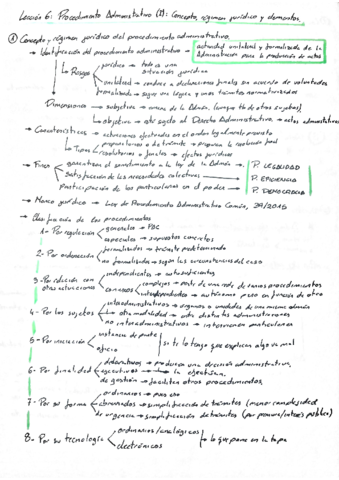 Lección 6: Procedimiento Administrativo (I): Concepto, régimen jurídico y elementos.
① Concepto y régimen jurídico del procedimiento administrativo.
→ Identificación del procedimiento administrativo → actividad unilateral y formalizada de la Administración para la producción de actos
↳ Rasgos
jurídico → todos una actuación jurídica
unilateral → conduce a declaraciones finales sin acuerdo de voluntades
formalizado → sigue una lógica y unos trámites normativizados
Dimensiones → subjetiva → emana de la Admón. (aunque tb de otros sujetos).
↳ objetiva → sujeto al Derecho Administrativo → actos administrativos
→ Características → actuaciones efectuadas en el orden legalmente previsto
↳ Tipos
preparatorios o de trámite → preparan la resolución final
resolutorios o finales → efectos jurídicos
→ Fines
garantizar el sometimiento a la ley de la Admón. → P. LEGALIDAD
Satisfacción de las necesidades colectivas → P. EFICIENCIA
Participación de los particulares en el poder → P. DEMOCRACIA
→ Marco jurídico → Ley de Procedimiento Administrativo Común, 39/2015
→ Clasificación de los procedimientos
1- Por regulación
generales → PAC
especiales → supuestos concretos
2- Por ordenación
formalizados → trámite predeterminado
no formalizados → según las circunstancias del caso
3- Por relación con otras actuaciones
independientes → autosuficientes
conexos
complejos → parte de una red de varios procedimientos
interdependientes → autónomo pero en función de otro
4- Por los sujetos
intraadministrativos → órganos o unidades de una misma admón
↳ otra modalidad → entre distintas administraciones
no interadministrativos → intervienen particulares
5- Por iniciación
instancia de parte
oficio
si te lo tengo que explicar algo va mal
6- Por finalidad
declarativos → producen una decisión administrativa
ejecutivos → la ejecutan.
de gestión → facilitan otros procedimientos
7- Por su forma
ordinarios → pues eso
abreviados → simplificación de trámites (menor complejidad)
de urgencia → simplificación de trámites (por premura/interés público)
8- Por su tecnología
ordinarios/analógicos
electrónicos
↳ lo que pone en la tapa